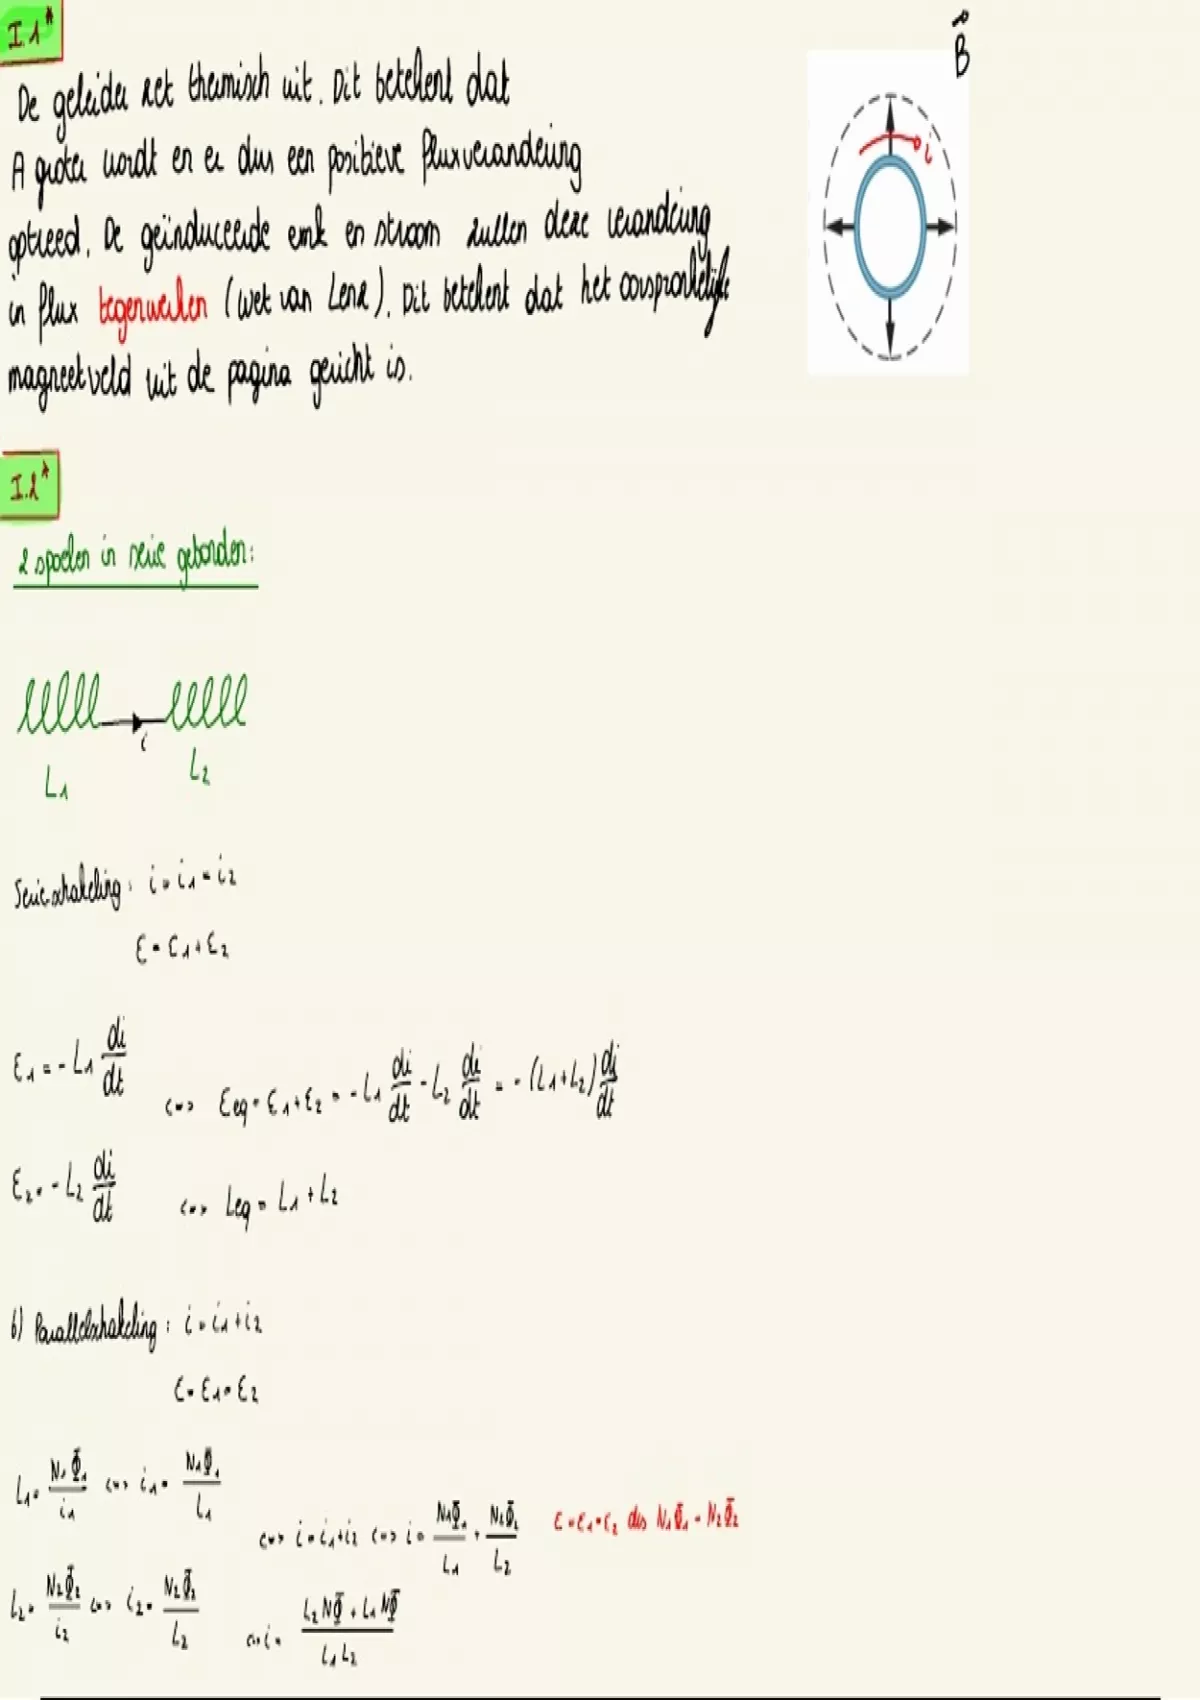 I.1*
B⃗
De geleider zet thermisch uit. Dit betekent dat
A groter wordt en er dus een positieve fluxverandering
optreed. De geïnduceerde emk en stroom zullen deze verandering
in flux tegenwerken (wet van Lenz). Dit betekent dat het oorspronkelijke
magneetveld uit de pagina gericht is.
i
I.2*
2 spoelen in serie gebonden:
i
L₁ L₂
Serieschakeling: i = i₁ = i₂
ε = ε₁ + ε₂
ε₁ = - L₁ di/dt
<=> εeq = ε₁ + ε₂ = - L₁ di/dt - L₂ di/dt = - (L₁ + L₂) di/dt
ε₂ = - L₂ di/dt
<=> Leq = L₁ + L₂
b) Parallelschakeling: i = i₁ + i₂
ε = ε₁ = ε₂
L₁ = N₁Φ₁/i₁ <=> i₁ = N₁Φ₁/L₁
<=> i = i₁ + i₂ <=> i = N₁Φ₁/L₁ + N₂Φ₂/L₂ ε = ε₁ = ε₂ dus N₁Φ₁ = N₂Φ₂
L₂ = N₂Φ₂/i₂ <=> i₂ = N₂Φ₂/L₂
<=> i = (L₂NΦ + L₁NΦ)/(L₁L₂)